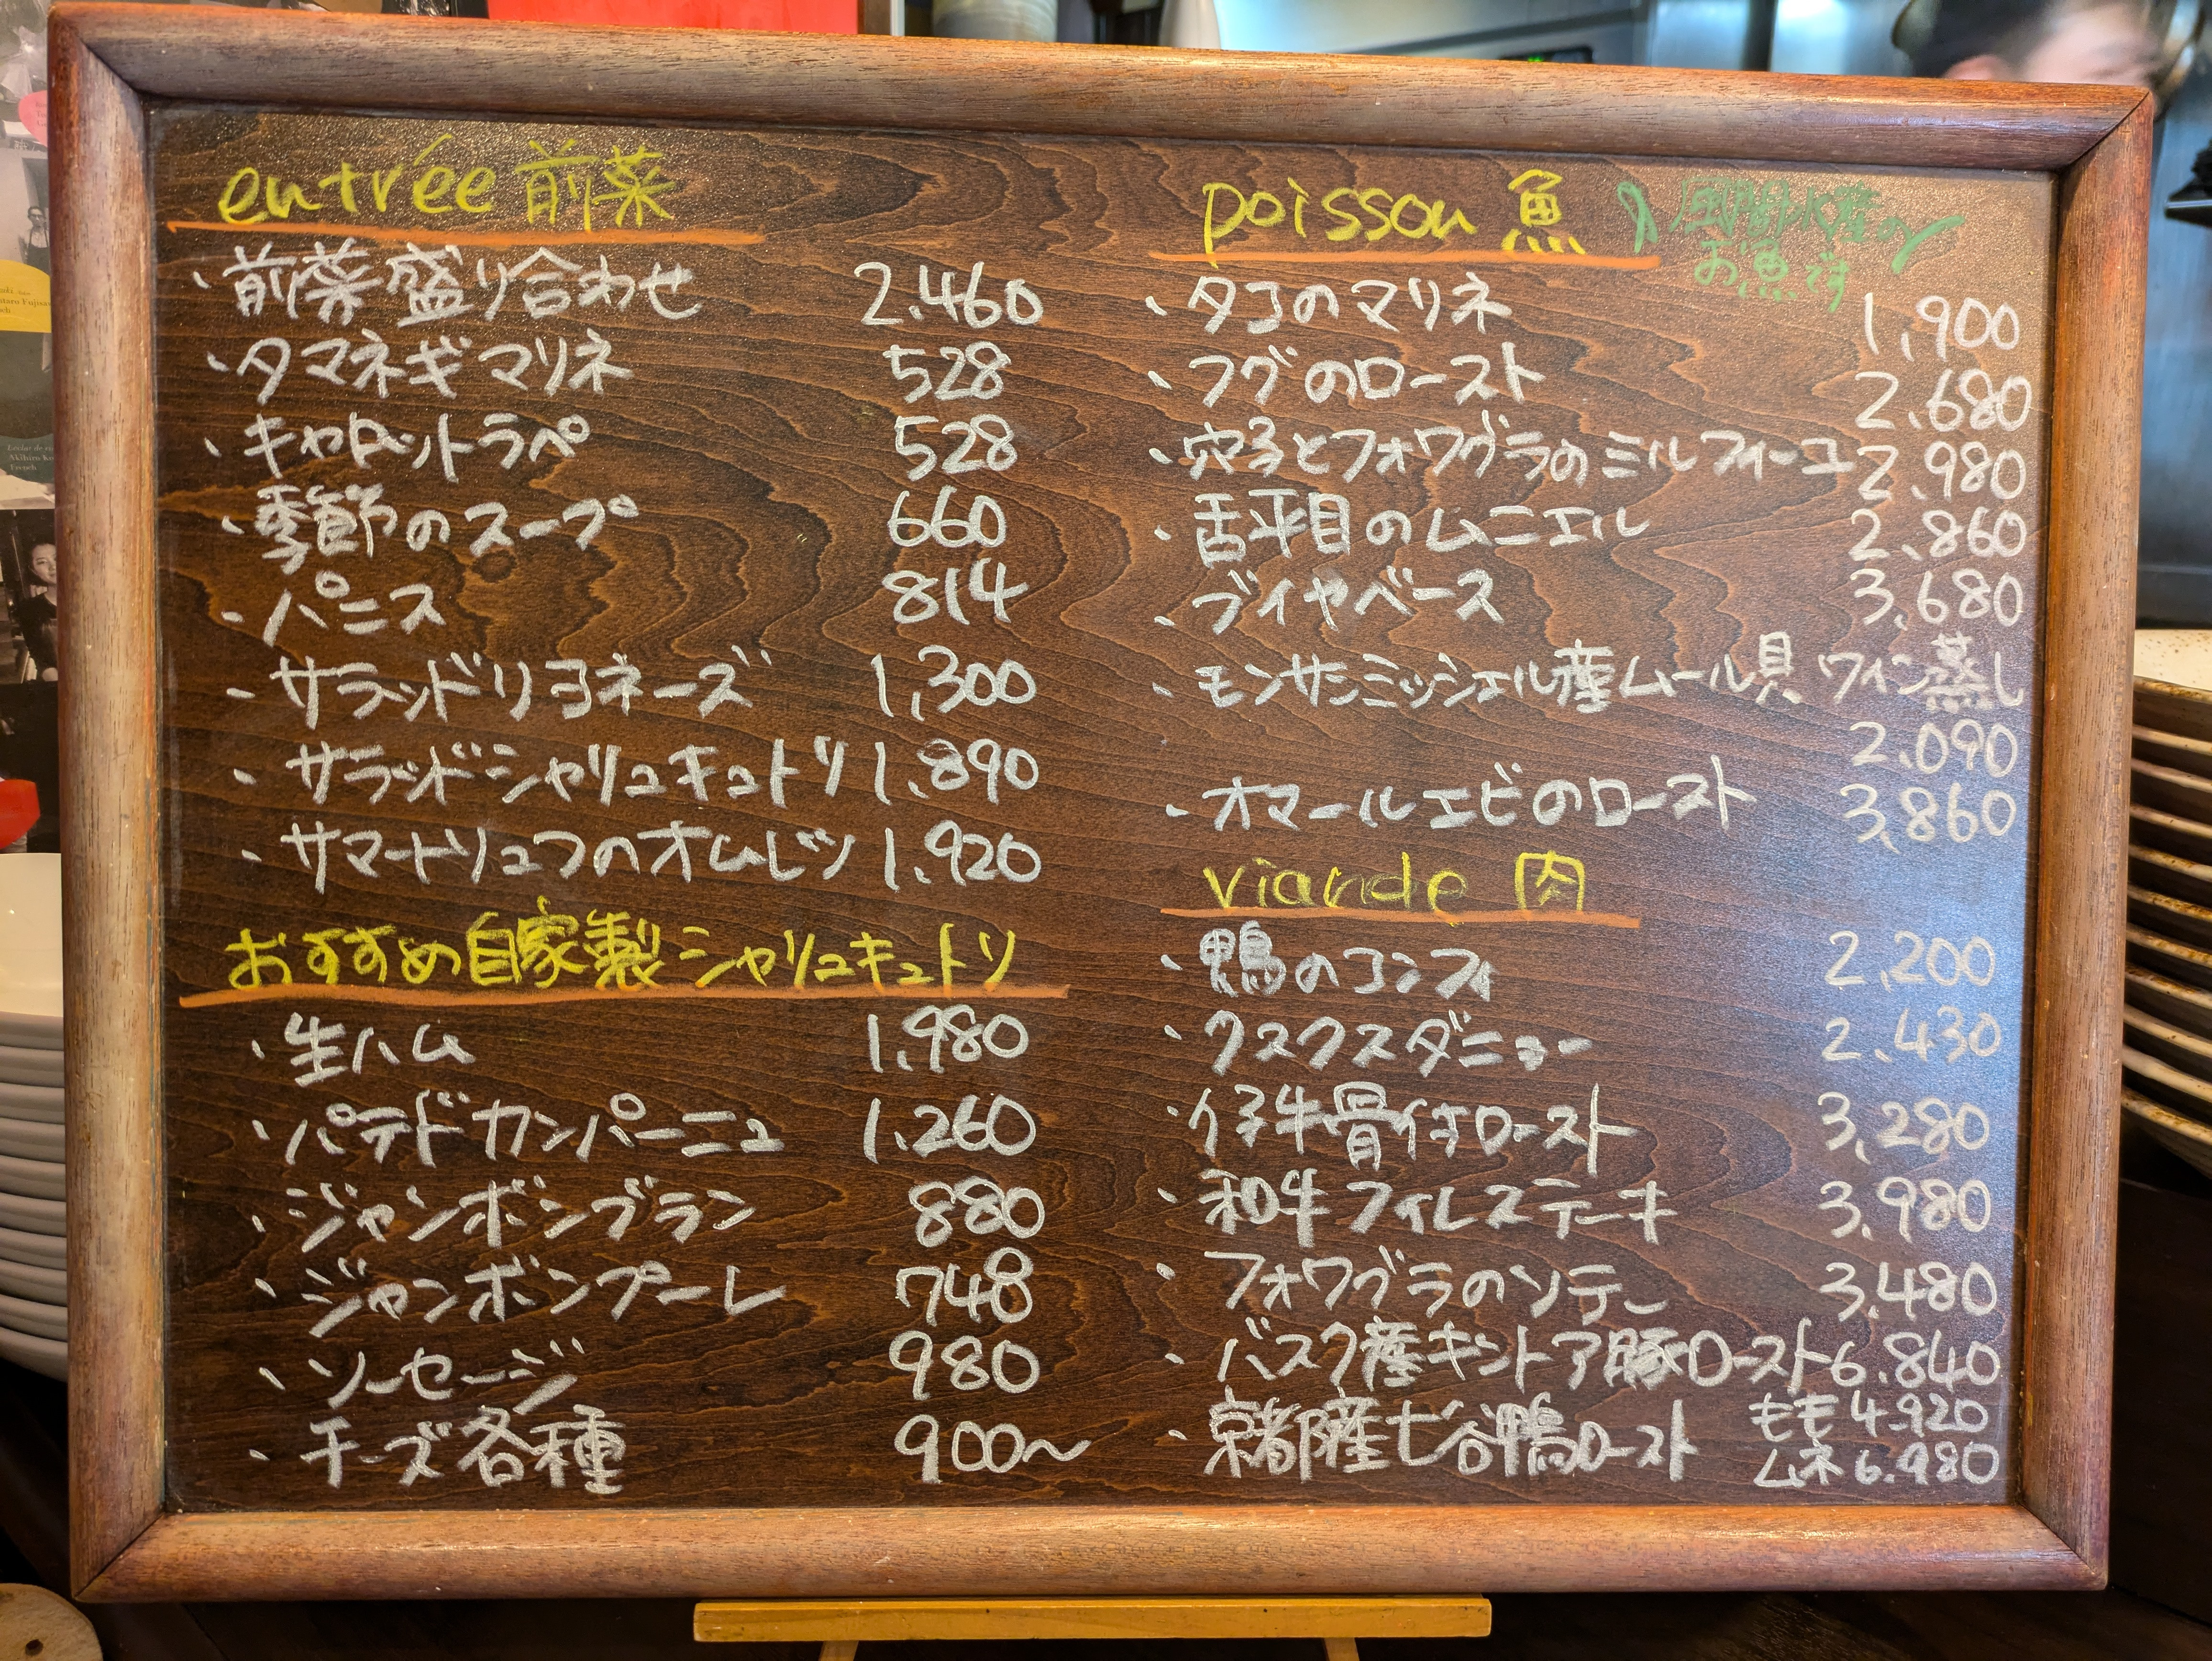 entrée 前菜
・前菜盛り合わせ 2.460
・タマネギマリネ 528
・キャロットラペ 528
・季節のスープ 660
・パニス 814
・サラッドリヨネーズ 1,300
・サラッドシャリュキュトリ 1.890
・サマートリュフのオムレツ 1.920
おすすめ自家製シャリュキュトリ
・生ハム 1.980
・パテドカンパーニュ 1.260
・ジャンボンブラン 880
・ジャンボンプーレ 748
・ソーセージ 980
・チーズ各種 900〜
poisson 魚
風間水産の
お魚です
・タコのマリネ 1,900
・フグのロースト 2.680
・穴子とフォワグラのミルフィーユ 2.980
・舌平目のムニエル 2.860
・ブイヤベース 3,680
・モンサンミッシェル産ムール貝 ワイン蒸し
2.090
・オマールエビのロースト 3,860
viande 肉
・鴨のコンフィ 2,200
・クスクスダニョー 2.430
・仔牛骨付ロースト 3,280
・和牛フィレステーキ 3,980
・フォワグラのソテー 3.480
・バスク産キントア豚ロースト 6.840
・京都産七谷鴨ロースト もも 4.920
ムネ 6.980
Akihiro
French